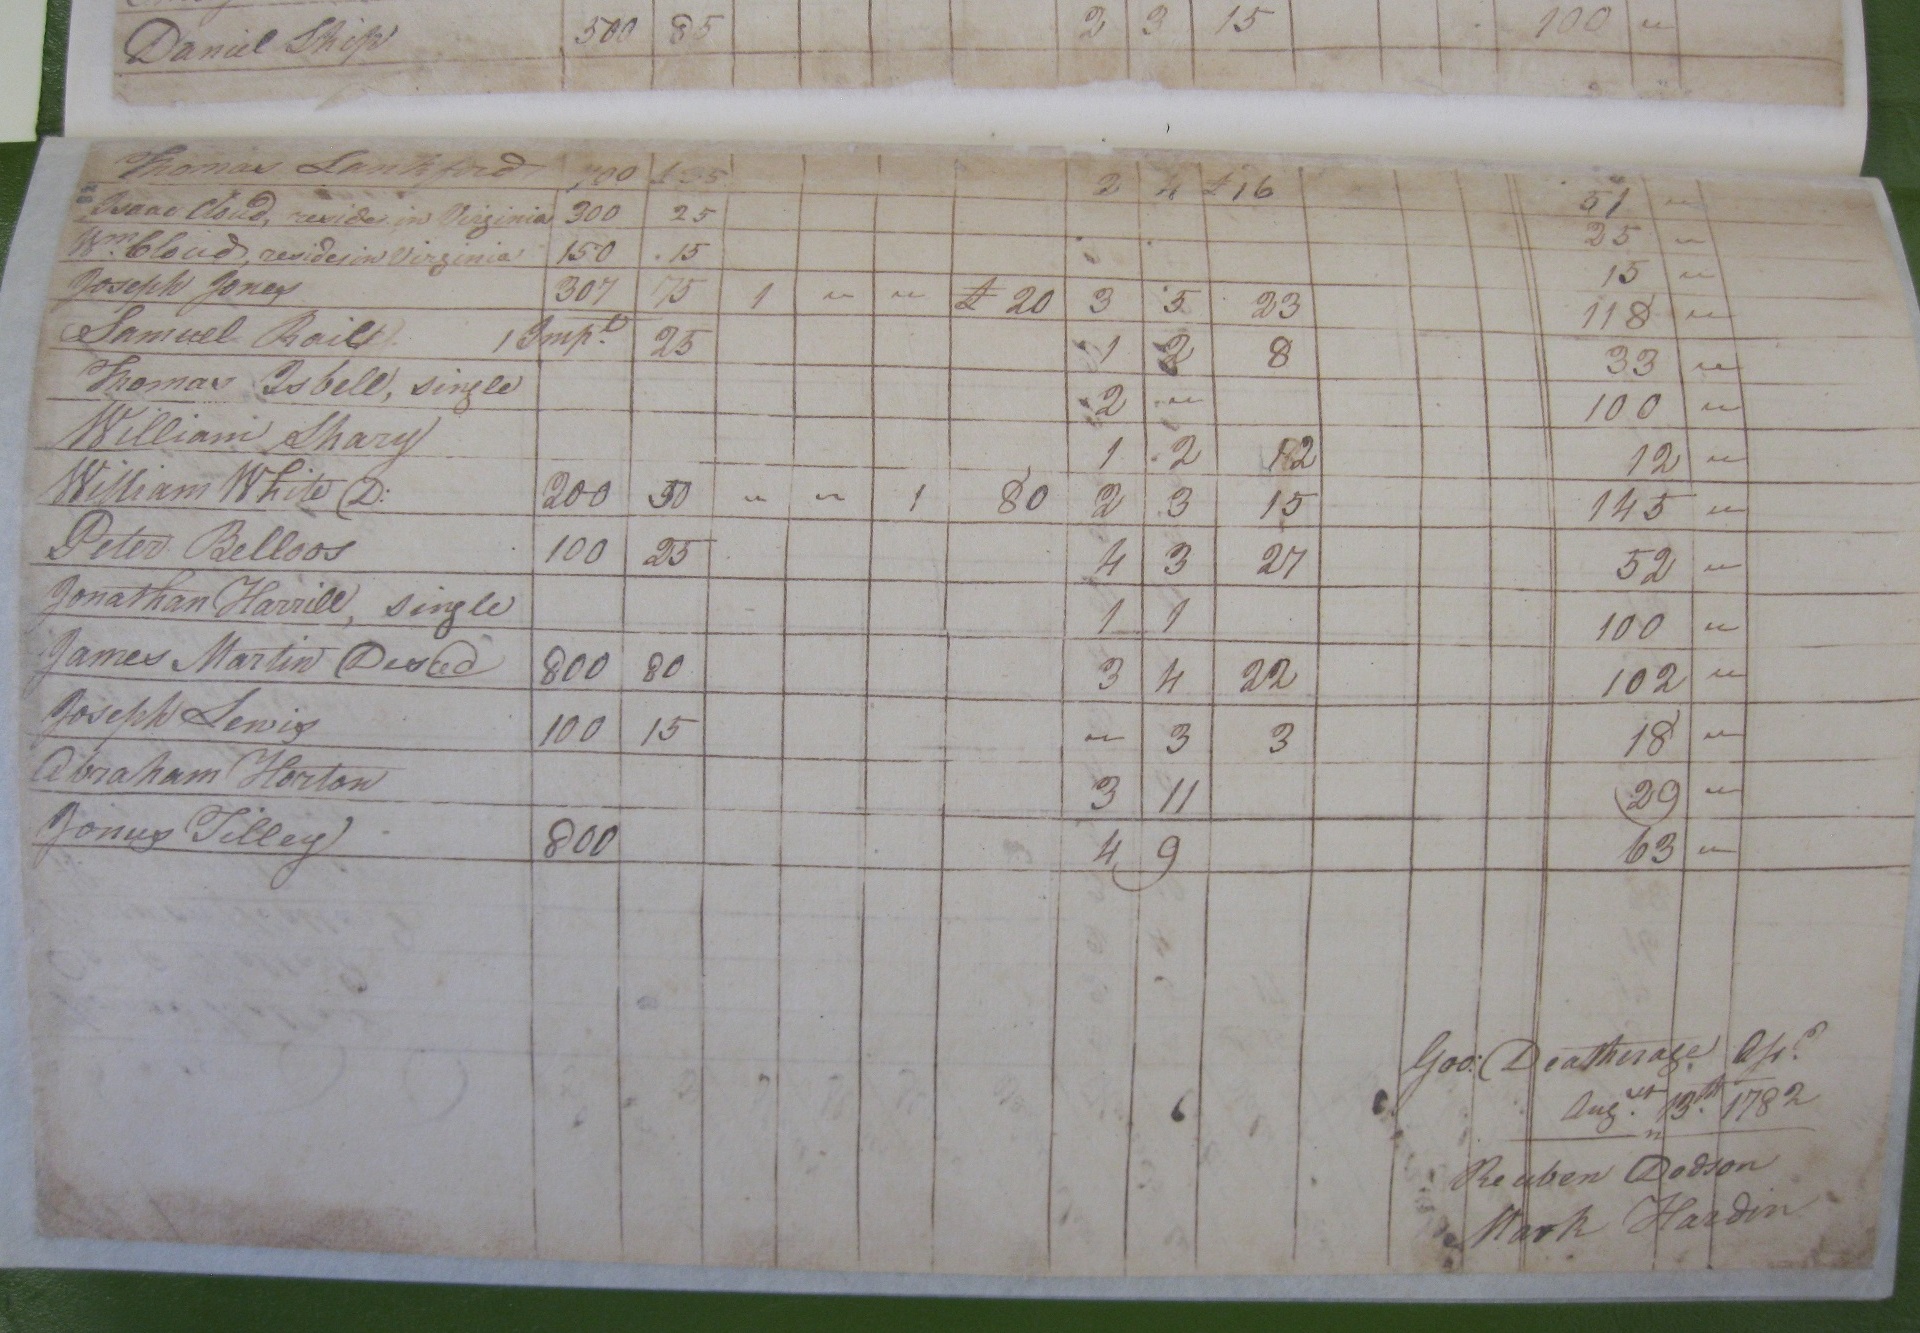 Daniel Ship 500 85 2 3 15 100 "
Thomas Lankford £35 2 4 £16 51 "
Isaac Cloud, resides in Virginia 300 25 25 "
Wm. Cloud, resides in Virginia 150 15 15 "
Joseph Jones 307 75 1 " " £ 20 3 5 23 118 "
Samuel 1 Impt. 25 1 2 8 33 "
Thomas Isbell, single 2 " 100 "
William Shary 1 2 12 12 "
William White D: 200 50 " " 1 80 2 3 15 145 "
Peter Belloos 100 25 4 3 27 52 "
Jonathan Harrill, single 1 1 100 "
James Martin Desced 800 80 3 4 22 102 "
Joseph Lewis 100 15 " 3 3 18 "
Abraham Horton 3 11 29 "
Jonus Tilley 800 4 9 63 "
Geo: Deatherage
Augst. 13th 1782
Reuben Dodson
Mark Hardin